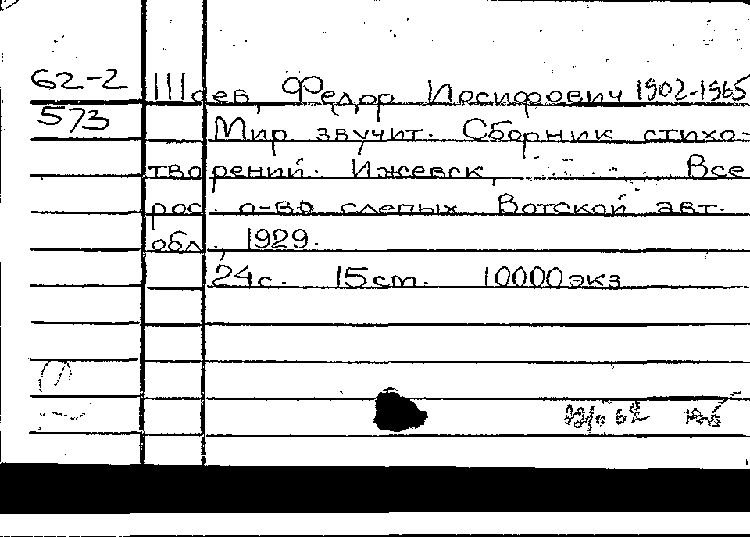 62-2 Шоев, Федор Иосифович 1902-1965
573 Мир звучит. Сборник стихо-
творений. Ижевск, Все
рос. о-во слепых Вотской авт.
обл., 1929.
24с. 15см. 10000экз